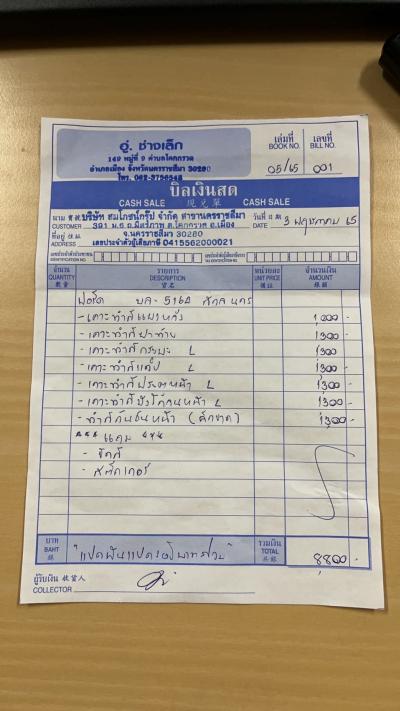 อู่. ช่างเล็ก
149 หมู่ที่ 9 ตำบลโคกกรวด
อำเภอเมือง จังหวัดนครราชสีมา 30280
โทร. 062-3756548
เล่มที่ เลขที่
BOOK NO. BILL NO.
05/65 001
บิลเงินสด
CASH SALE 現兑單 CASH SALE
นาม บริษัท สมโภชน์กรุ๊ป จำกัด สาขานครราชสีมา วันที่ 3 พฤษภาคม 65
CUSTOMER 391 ม.6 ถ.มิตรภาพ ต.โคกกรวด อ.เมือง DATE
ที่อยู่ จ.นครราชสีมา 30280
ADDRESS เลขประจำตัวผู้เสียภาษี 0415562000021
จำนวน รายการ หน่วยละ จำนวนเงิน
QUANTITY DESCRIPTION UNIT PRICE AMOUNT
ฟอร์ด บล-5162 สกลนคร
- เคาะทำสี 1,000 -
- เคาะทำสีฝาท้าย 1,300 -
- เคาะทำสีกระบะ L 1,300 -
- เคาะทำสีแค็ป L 1,300 -
- เคาะทำสีประตูหน้า L 1,300 -
- เคาะทำสีบังโคลนหน้า L 1,300 -
- ทำสีกันชนหน้า 1,300 -
*** แถม ***
- ขัดสี
- สติ๊กเกอร์
บาท "แปดพันแปดร้อยบาทถ้วน" รวมเงิน 8,800 -
BAHT TOTAL
ผู้รับเงิน 收貨人
COLLECTOR